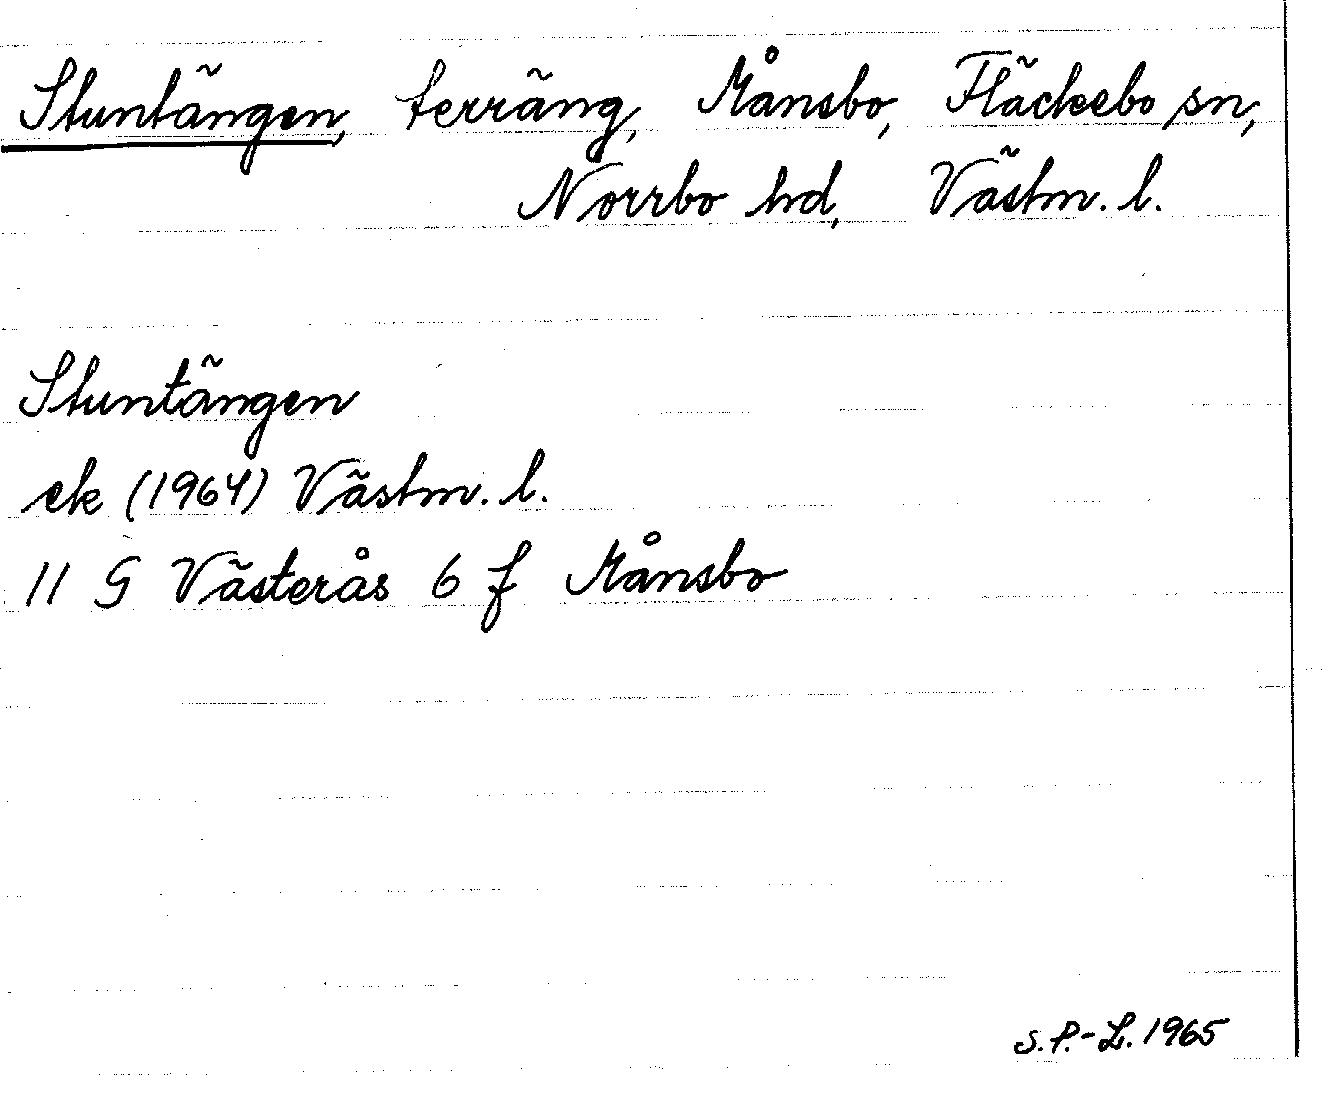 Stuntängen, terräng, Månsbo, Fläckebo sn,
Norrbo hd, Västm. l.
Stuntängen
ek (1964) Västm. l.
11 G Västerås 6 f Månsbo
S.P.-L. 1965